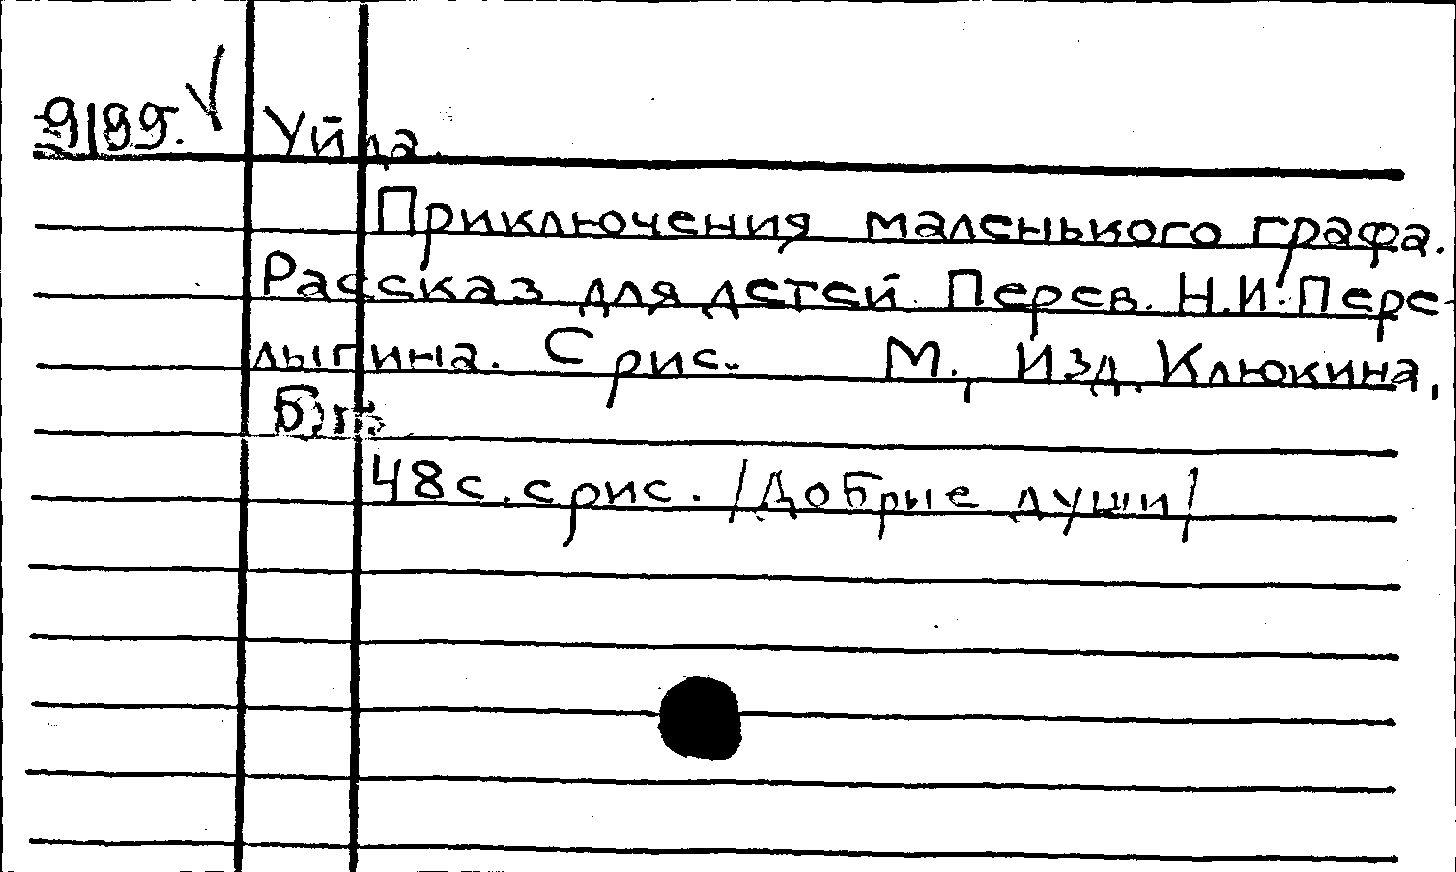 9199. Уйда.
Приключения маленького графа.
Рассказ для детей. Перев. Н.И. Пере-
лыгина. С рис. М., Изд. Клюкина,
48 с. с рис. /Добрые души/